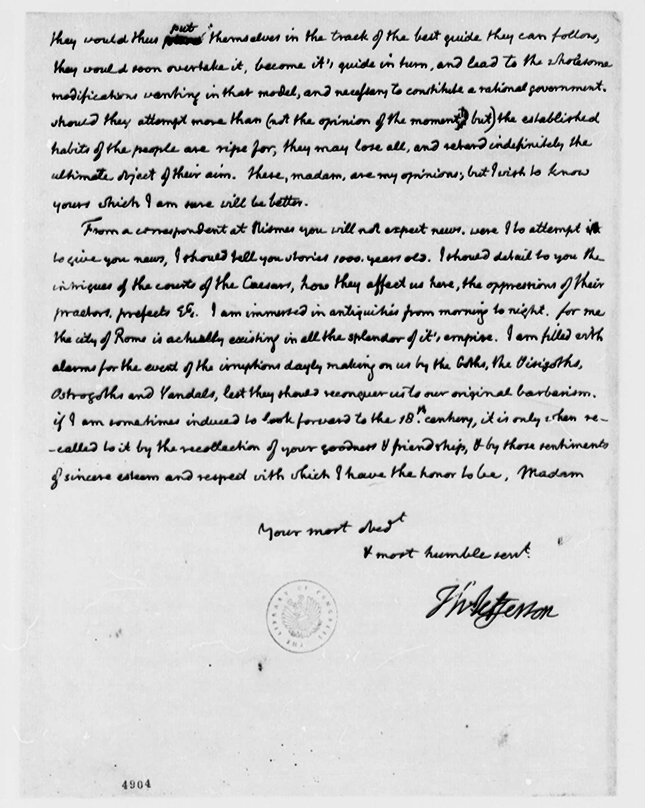 they would thus put themselves in the track of the best guide they can follow,
they would soon overtake it, become it's guide in turn, and lead to the wholesome
modifications wanting in that model, and necessary to constitute a rational government.
should they attempt more than (not the opinion of the moment, but) the established
habits of the people are ripe for, they may lose all, and retard indefinitely the
ultimate object of their aim. these, madam, are my opinions; but I wish to know
yours which I am sure will be better.
From a correspondent at Nismes you will not expect news. were I to attempt
to give you news, I should tell you stories 1000. years old. I should detail to you the
intrigues of the courts of the Caesars, how they affect us here, the oppressions of their
praetors, prefects &c. I am immersed in antiquities from morning to night. for me
the city of Rome is actually existing in all the splendor of it's empire. I am filled with
alarms for the event of the irruptions dayly making on us by the Goths, the Visigoths,
Ostrogoths and Vandals, lest they should reconquer us to our original barbarism.
if I am sometimes induced to look forward to the 18th. century, it is only when re-
-called to it by the recollection of your goodness & friendship, & by those sentiments
of sincere esteem and respect with which I have the honor to be, Madam
Your most obedt
& most humble servt.
Th: Jefferson
THE LIBRARY OF CONGRESS
4904